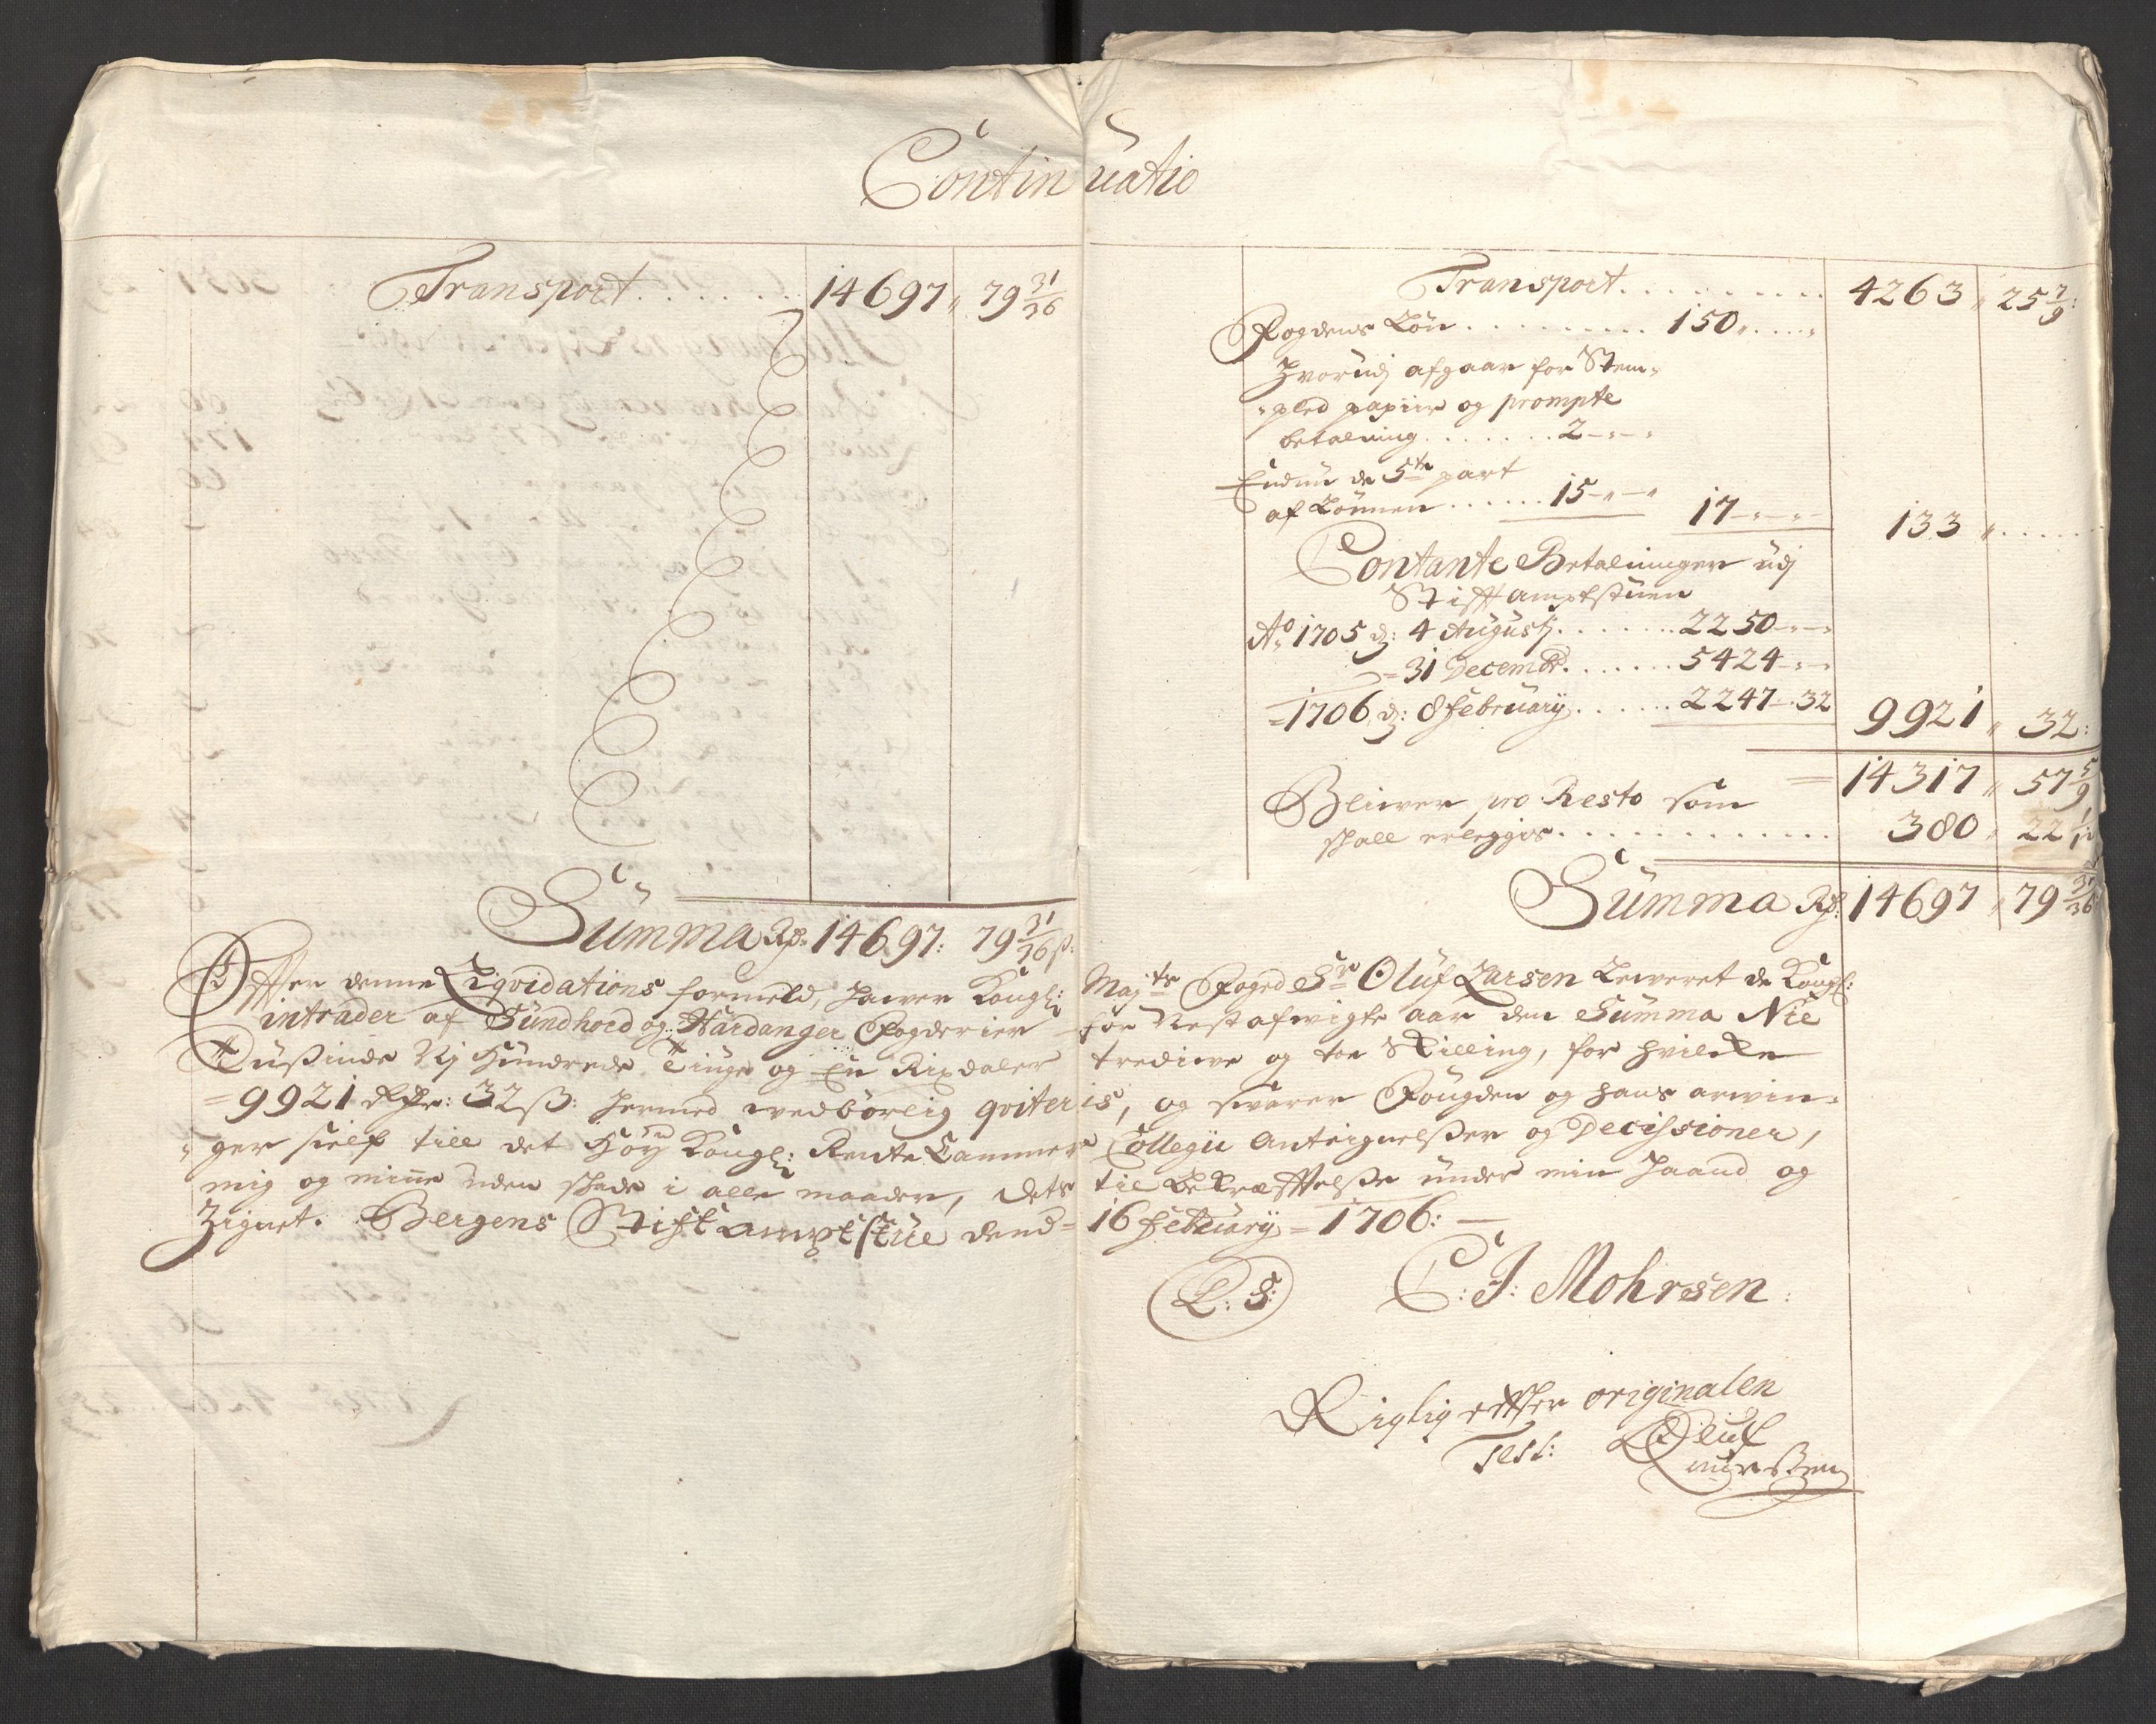 Continuatio
Transport . . . . . . . 14697 „ 79 31/36
Summa Rdr: 14697: 79 31/36 ß:
Transport . . . . . . . . . 4263 „ 25 7/9:
Fogdens Løn . . . . . . . . . . 150 „ . . . „
Hvorudj afgaar for Stem„
„pled papiir og prompte
betalning . . . . . . . 2 - „ - „
Endnu de 5te part
af Lønnen . . . . . . 15 - „ - „ 17 - „ - „ - 133 „ . . . . .
Contante Betalninger udj
Stifftamptstuen
Ao 1705 d: 4 Augusti . . . . . . . 2250 - „ -
= 31 Decembr . . . . . . . 5424 - „ -
= 1706 d: 8 february . . . . . . 2247 - 32 9921 „ 32:
= 14317 „ 57 5/9
Blifver pro Resto som
skall erleggis . . . . . . . . . . . . . 380 „ 22 1/12
Summa Rdr: 14697 „ 79 31/36
Effter denne Liqvidations formeld, hafver Kongl: Maj:ts Foged Sr Oluf Larsen Leweret de Kongl:
intrader af Sundhord og Hardanger Fogderier for Nest afvigte aar den Summa Nie
Tusinde Nj Hundrede Tiuge og En Rixdaler trediwe og toe Skilling, for hvilcke
= 9921 Rdr: 32 ß: hermed wedbørlig qviteris, og svarer Fougden og hans arvin„
„ger sielf till det Høy Kongl: Rente Cammer Collegii Antegnelsser og Decissioner,
mig og mine uden skade i alle maader, Dets til Bekræfftelsse under min Haand og
Zignet. Bergens Stiftamptstue dend = 16 february = 1706: —
L: S: C: J: Mohrsen:
Rigtig effter originalen
Test: Oluf
Laurssen